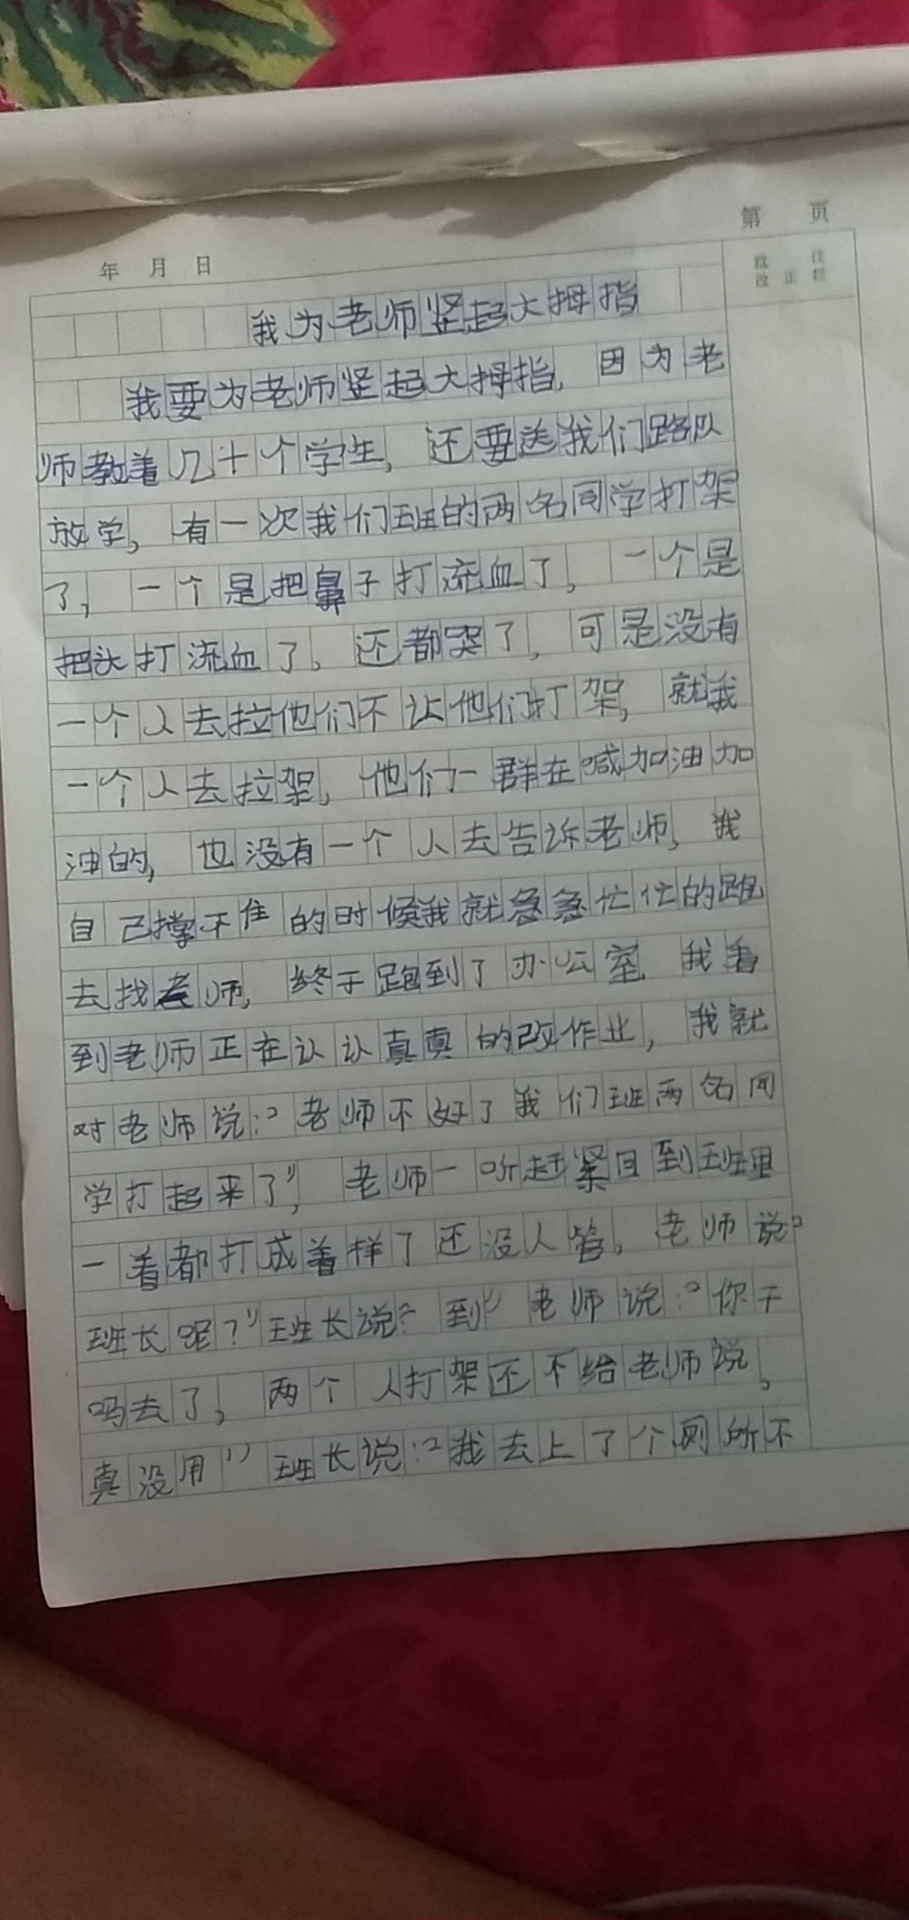 第 页
年 月 日
批 注
改 正 栏
我为老师竖起大拇指
我要为老师竖起大拇指，因为老
师教着几十个学生，还要送我们路队
放学，有一次我们班的两名同学打架
了，一个是把鼻子打流血了，一个是
把头打流血了。还都哭了，可是没有
一个人去拉他们不让他们打架，就我
一个人去拉架，他们一群在喊加油加
油的，也没有一个人去告诉老师，我
自己撑不住的时候我就急急忙忙的跑
去找老师，终于跑到了办公室 我看
到老师正在认认真真的改作业，我就
对老师说：“老师不好了我们班两名同
学打起来了”，老师一听赶紧目到班里
一看都打成着样了还没人管。老师说“
班长呢？”班长说“到”老师说：“你干
吗去了，两个人打架还不给老师说。
真没用”班长说：“我去上了个厕所不